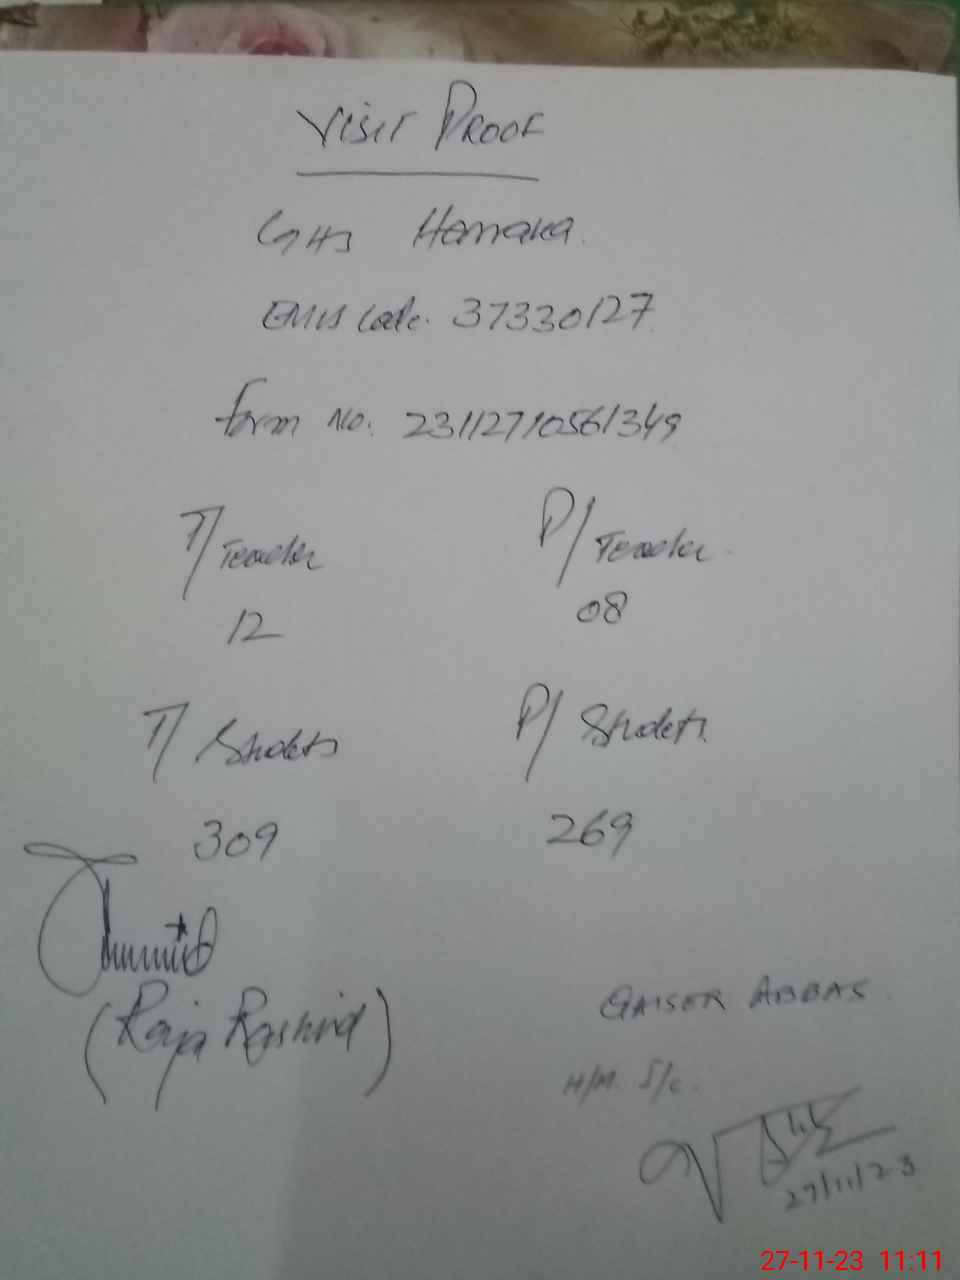 Visit Proof
GHS Hamaka.
EMIS Code. 37330127
Form No: 23112710561349
T/Teacher P/Teacher.
12 08
T/Students P/Students.
309 269
(Raja Rashid)
QAISER ABBAS.
H/M. I/c.
27/11/23
27-11-23 11:11